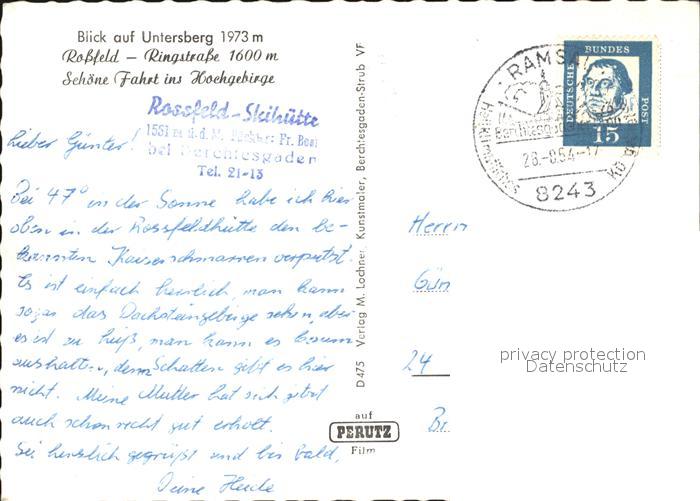 Blick auf Untersberg 1973 m
Roßfeld – Ringstraße 1600 m
Schöne Fahrt ins Hochgebirge
Rossfeld-Skihütte
1551 m ü.d.M. Pächter: Fr.
bei Berchtesgaden
Tel. 21-13
Lieber Günter!
Bei 47° in der Sonne habe ich hier
oben in der Rossfeldhütte den be-
kannten Kaiserschmarren verputzt.
Es ist einfach herrlich, man kann
sogar das Dachsteingebirge sehen, aber
es ist zu heiß, man kann es kaum
aushalten, denn Schatten gibt es hier
nicht. Meine Mutter hat sich jetzt
auch schon recht gut erholt.
Sei herzlich gegrüßt und bis bald,
Deine Heide
D 475 Verlag M. Lochner, Kunstmaler, Berchtesgaden-Strub VF
auf
PERUTZ
Film
RAMSAU
8243
DEUTSCHE BUNDES POST
15
Herrn
Gün
24
Br.
privacy protection
Datenschutz